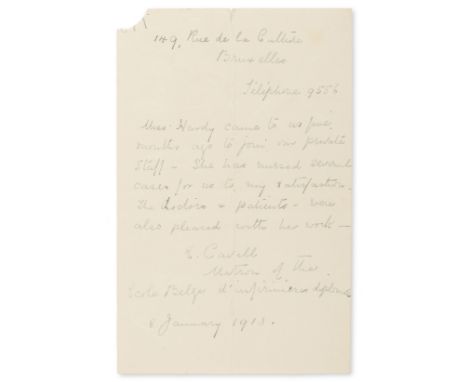 149, Rue de la Culture
Bruxelles
Téléphone 9556
Miss Hardy came to us five
months ago to join our private
Staff – She has nursed several
cases for us to my satisfaction.
The doctors & patients – were
also pleased with her work –
E. Cavell
Matron of the
Ecole Belge d'infirmières diplomées
January 1913.